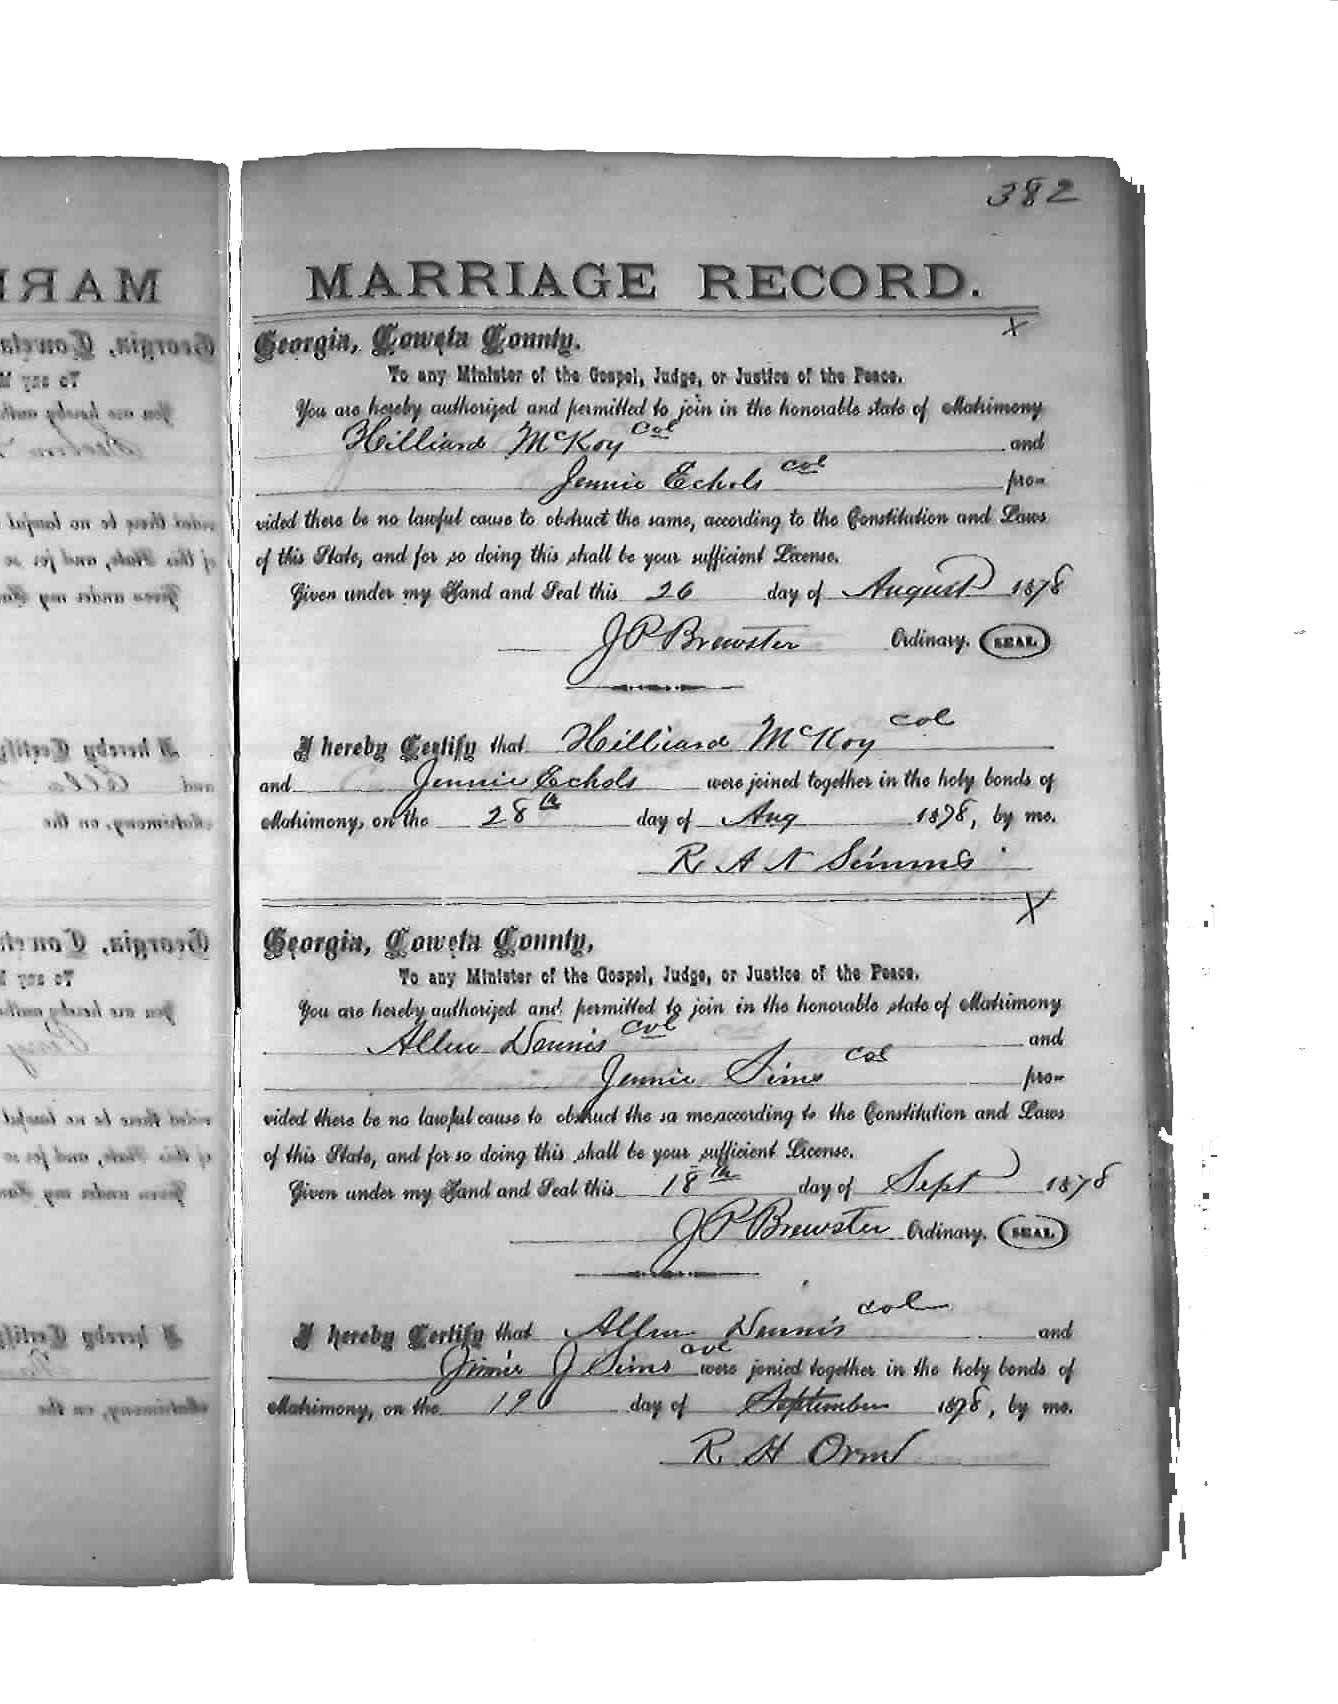 382
MARRIAGE RECORD.
Georgia, Coweta County.
To any Minister of the Gospel, Judge, or Justice of the Peace.
You are hereby authorized and permitted to join in the honorable state of Matrimony
Hilliard McKoy col and
Jennie Echols col pro-
vided there be no lawful cause to obstruct the same, according to the Constitution and Laws
of this State, and for so doing this shall be your sufficient License.
Given under my Hand and Seal this 26 day of August 1878
J P Brewster Ordinary. SEAL
I hereby Certify that Hilliard McKoy col
and Jennie Echols were joined together in the holy bonds of
Matrimony, on the 28th day of Aug 1878, by me.
R A N Simms
Georgia, Coweta County,
To any Minister of the Gospel, Judge, or Justice of the Peace.
You are hereby authorized and permitted to join in the honorable state of Matrimony
Allen Dennis col and
Jennie Sims col pro-
vided there be no lawful cause to obstruct the sa me, according to the Constitution and Laws
of this State, and for so doing this shall be your sufficient License.
Given under my Hand and Seal this 18th day of Sept 1878
J P Brewster Ordinary. SEAL
I hereby Certify that Allen Dennis col and
Jinnie J Sims col were jonied together in the holy bonds of
Matrimony, on the 19 day of September 1878, by me.
R H Orm